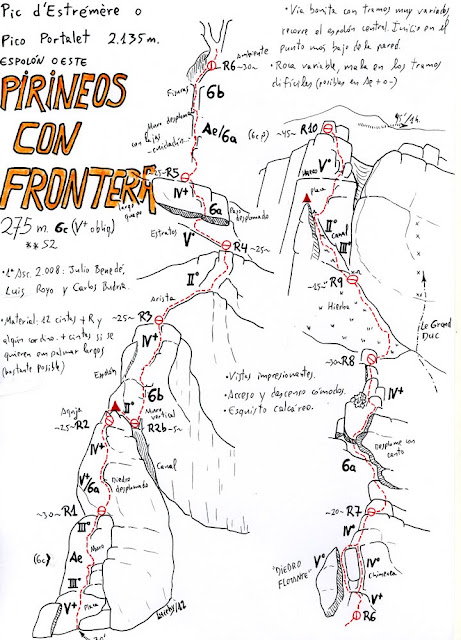 Pic d'Estrémère o
Pico Portalet 2.135 m.
ESPOLÓN OESTE
PIRINEOS
CON
FRONTERA
275 m. 6c (V+ oblig)
** S2
• 1ª Asc. 2.008: Julio Benedé,
Luis Royo y Carlos Budria.
• Material: 12 cintas + R y
algún cordino. + cintas si se
quieren empalmar largos
(bastante posible)
• Vía bonita con tramos muy variados,
recorre el espolón central. Inicio en el
punto más bajo de la pared.
• Roca variable, mala en los tramos
difíciles (posibles en Ae + o -)
Ambiente
R6 ~30~
Fisuras
6b
Muro desplomado
con lajas
Ae/6a
(6c?)
R5
IV+
6a
Paso
desplomado
Estratos
V°
R4 ~25~
II°
Arista
~25~ R3
IV+
Espolón
6b
II°
Muro
vertical
R2b ~5~
~25~ R2
IV+
Canal
V+/6a
Diedro
desplomado
~30~ R1
III°
(6c)
Ae
Muro
III°
V+
Placa
~45~ R10
95/14.
V°
Placa
II°
Canal
III°
~15~ R9
Hierba
Le Grand
Duc
~30~ R8
• Vistas impresionantes.
• Acceso y descenso cómodos.
• Esquisto calcáreo.
IV+
Desplome con
canto
6a
~20~ R7
IV°
"DIEDRO
FLOTANTE"
V°
IV°
Chimenea
V+
R6